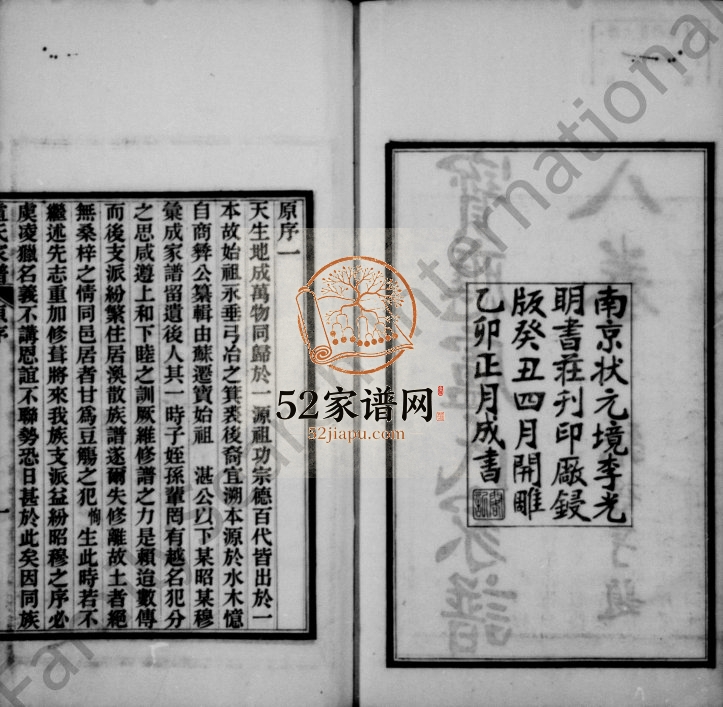 南京状元境李光
明書莊刊印厰鋟
版癸丑四月開雕
乙卯正月成書
原序一
天生地成萬物同歸於一源祖功宗德百代皆出於一
本故始祖永垂弓冶之箕裘後裔宜溯本源於水木憶
自商彝公纂輯由蘇遷寶始祖 湛公以下某昭某穆
彙成家譜留遺後人其一時子姪孫輩罔有越名犯分
之思咸遵上和下睦之訓厥維修譜之力是賴迨數傳
而後支派紛繁住居渙散族譜遂爾失修離故土者絕
無桑梓之情同邑居者甘爲豆觴之犯 恂 生此時若不
繼述先志重加修葺將來我族支派益紛昭穆之序必
虞凌獵名義不講恩誼不聯勢恐日甚於此矣因同族
氏家譜 原序 一
52家谱网
52jiapu.com